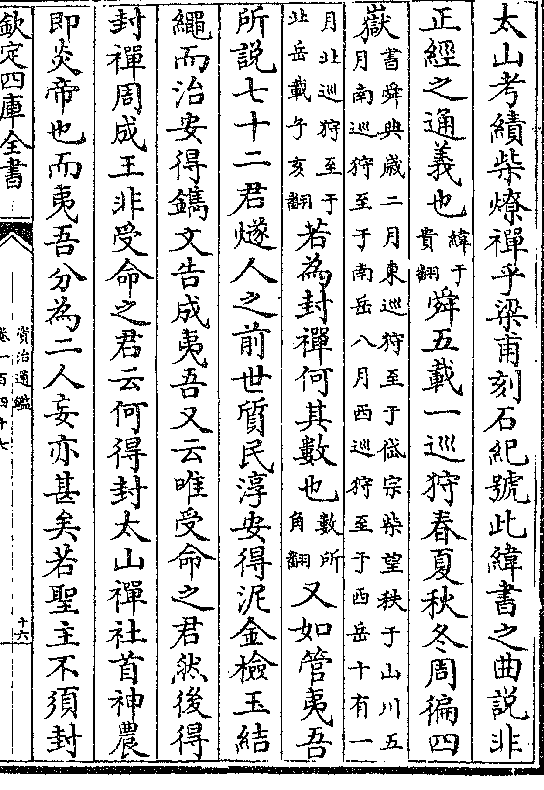 太山考績柴燎禪乎梁甫刻石紀號此緯書之曲説非
正經之通義也緯于貴翻舜五載一巡狩春夏秋冬周徧四
嶽書舜典歳二月東巡狩至于岱宗柴望秩于山川五月南巡狩至于南岳八月西巡狩至于西岳十有一
月北巡狩至于北岳載子亥翻若為封禪何其數也數所角翻又如管夷吾
所説七十二君燧人之前世質民淳安得泥金檢玉結
繩而治安得鐫文告成夷吾又云唯受命之君然後得
封禪周成王非受命之君云何得封太山禪社首神農
即炎帝也而夷吾分為二人妄亦甚矣若聖主不須封
欽定四庫全書
資治通鑑
卷一百四十七
十六